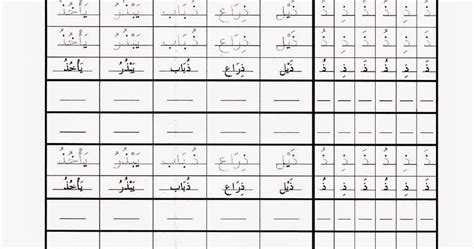 ذَ ذِ ذُ ذَ ذِ ذُ ذَيْل ذِرَاع ذُبَاب يَبْذُرُ يَأْخُذُ
ذَ ذِ ذُ ذَ ذِ ذُ ذَيْل ذِرَاع ذُبَاب يَبْذُرُ يَأْخُذُ
ذَ ذِ ذُ ذَ ذِ ذُ ذَيْل ذِرَاع ذُبَاب يَبْذُرُ يَأْخُذُ
ذَ ذِ ذُ ذَ ذِ ذُ ذَيْل ذِرَاع ذُبَاب يَبْذُرُ يَأْخُذُ
ذَ ذِ ذُ ذَ ذِ ذُ ذَيْل ذِرَاع ذُبَاب يَبْذُرُ يَأْخُذُ